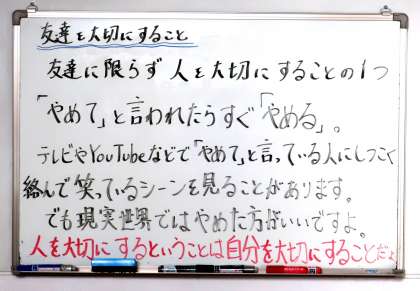 友達を大切にすること
友達に限らず人を大切にすることの1つ
「やめて」と言われたらすぐ「やめる」。
テレビやYouTubeなどで「やめて」と言っている人にしつこく
絡んで笑っているシーンを見ることがあります。
でも現実世界ではやめた方がいいですよ。
人を大切にするということは自分を大切にすることだよ